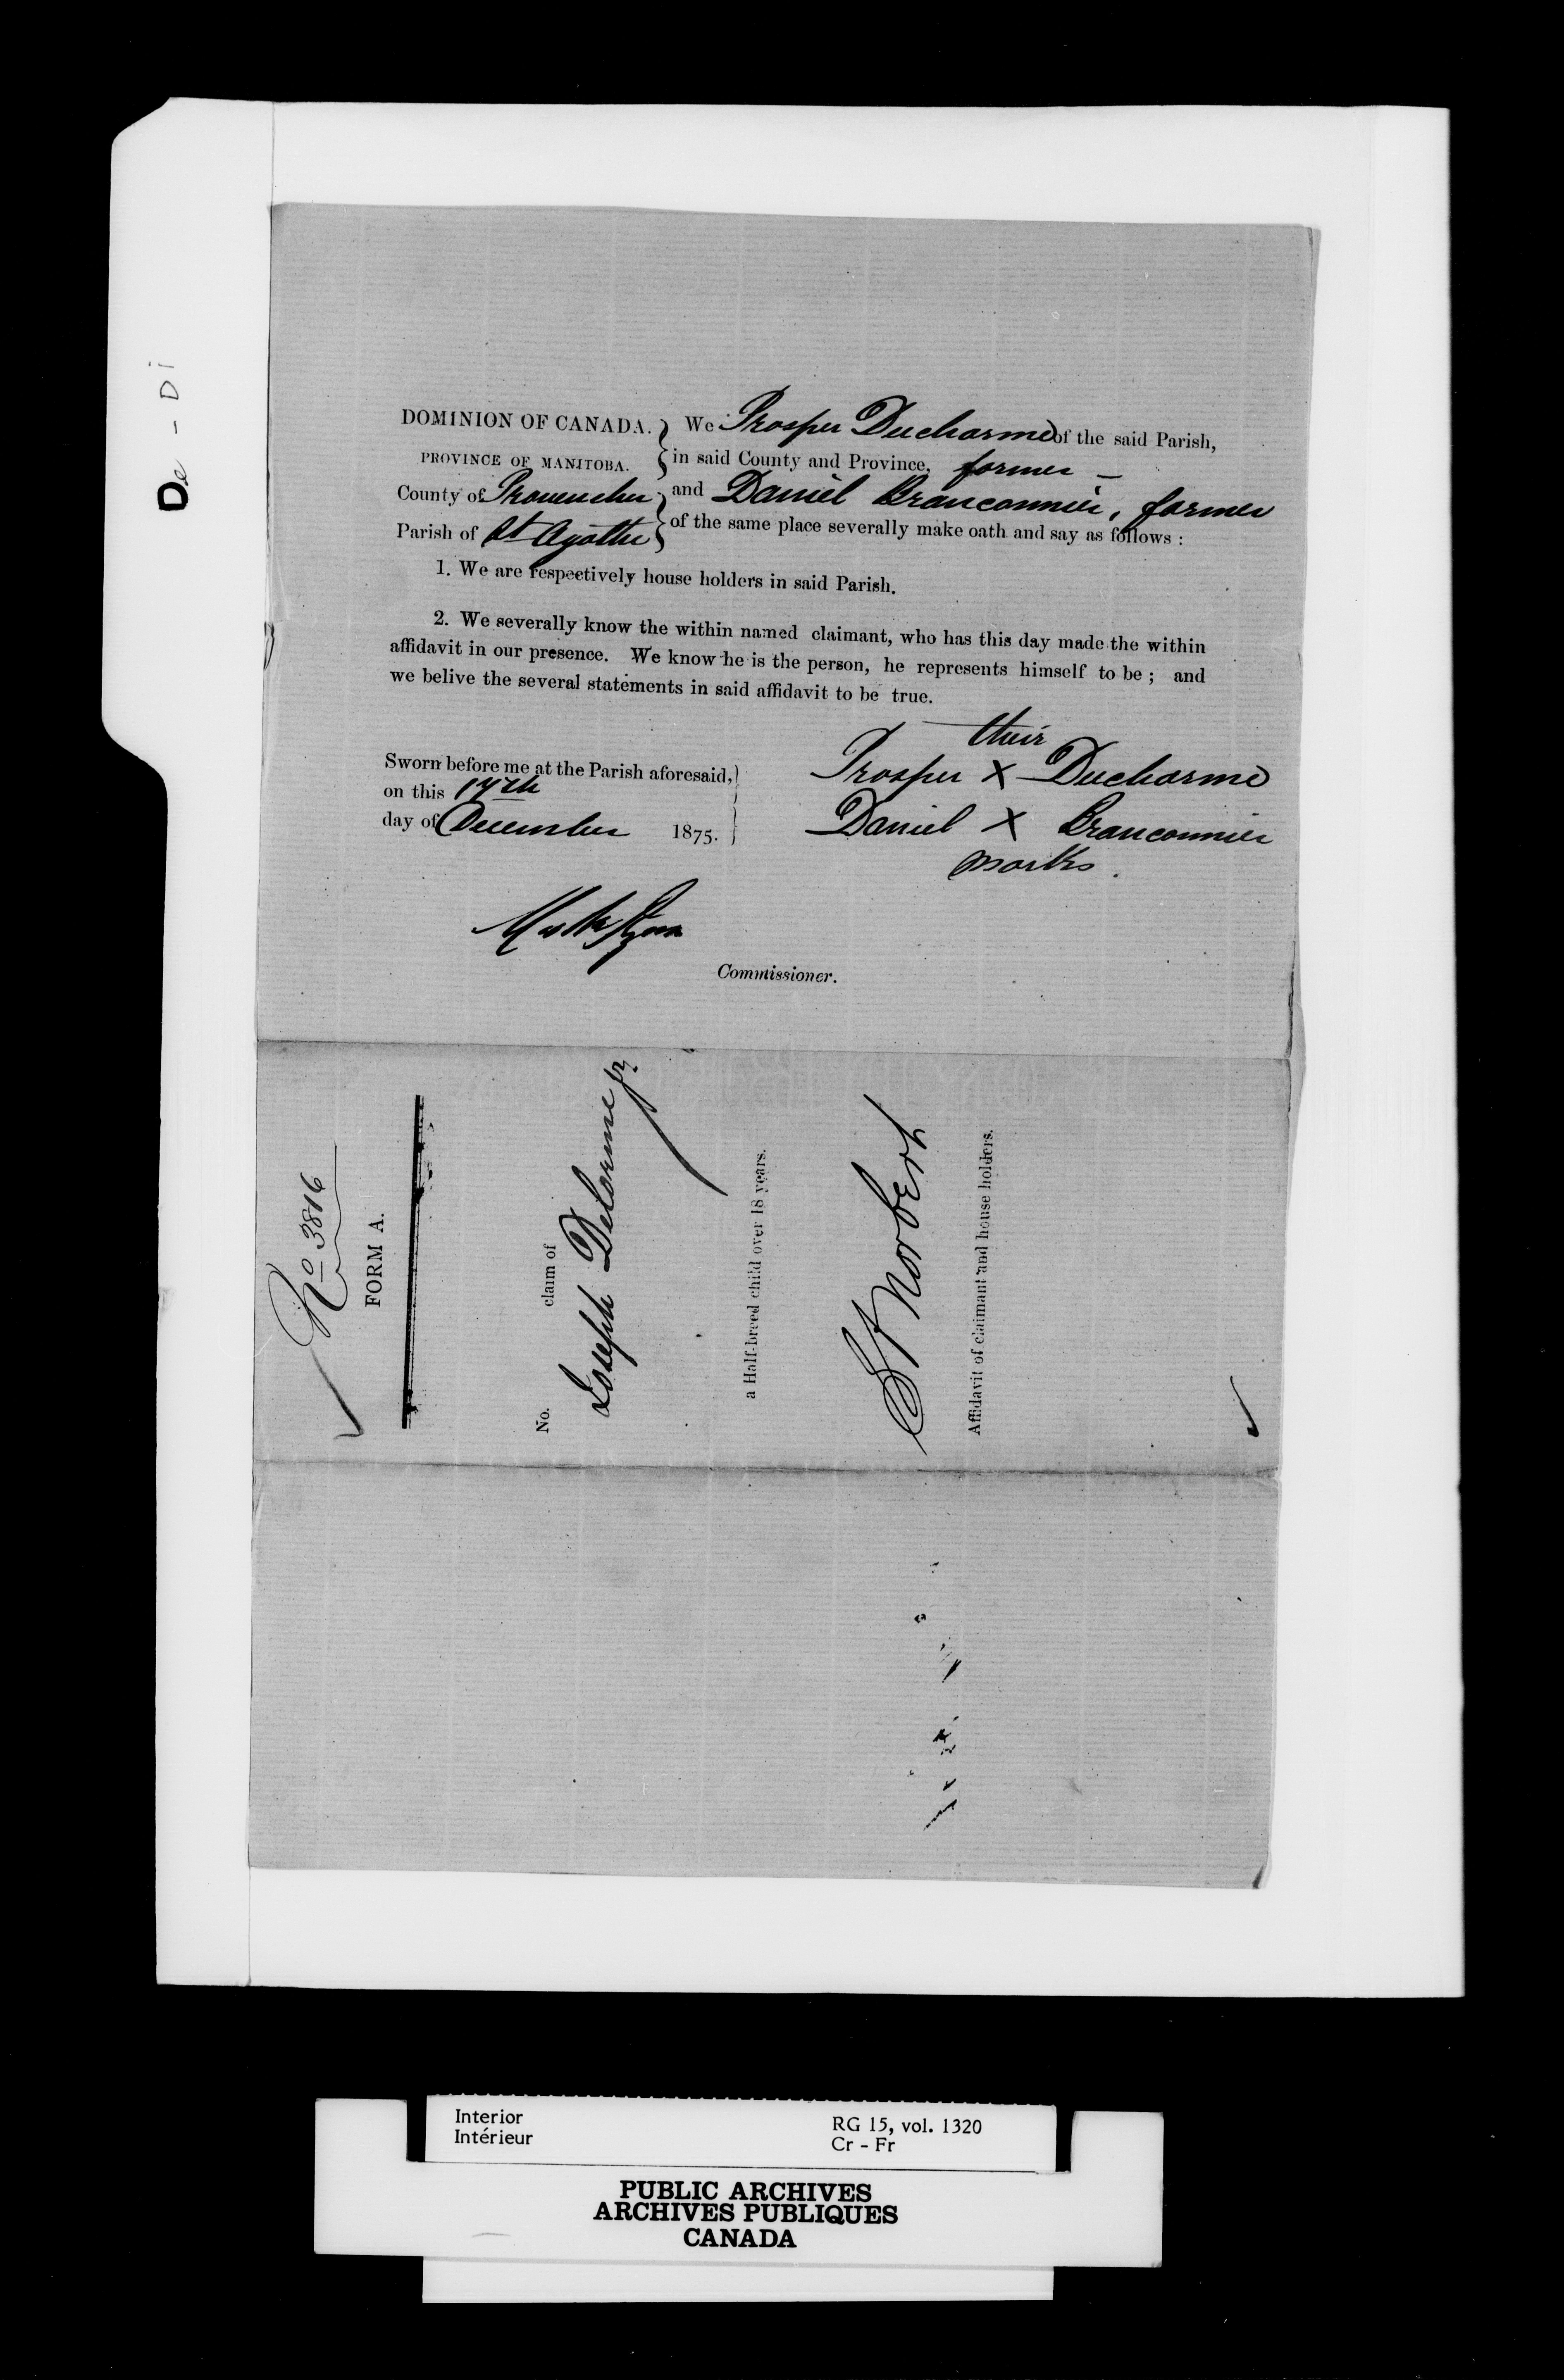 De - Di
DOMINION OF CANADA.
PROVINCE OF MANITOBA.
County of Provencher
Parish of St Agathe
We Prosper Ducharme of the said Parish,
in said County and Province, farmer —
and Daniel Branconnier, farmer
of the same place severally make oath and say as follows :
1. We are respectively house holders in said Parish.
2. We severally know the within named claimant, who has this day made the within
affidavit in our presence. We know he is the person, he represents himself to be ; and
we belive the several statements in said affidavit to be true.
Sworn before me at the Parish aforesaid,
on this 17th
day of December 1875.
their
Prosper X Ducharme
Daniel X Branconnier
marks.
Commissioner.
No 3816
FORM A.
No. claim of
Joseph Delorme jr
a Half-breed child over 18 years.
St Norbert
Affidavit of claimant and house holders.
Interior
Intérieur
RG 15, vol. 1320
Cr - Fr
PUBLIC ARCHIVES
ARCHIVES PUBLIQUES
CANADA